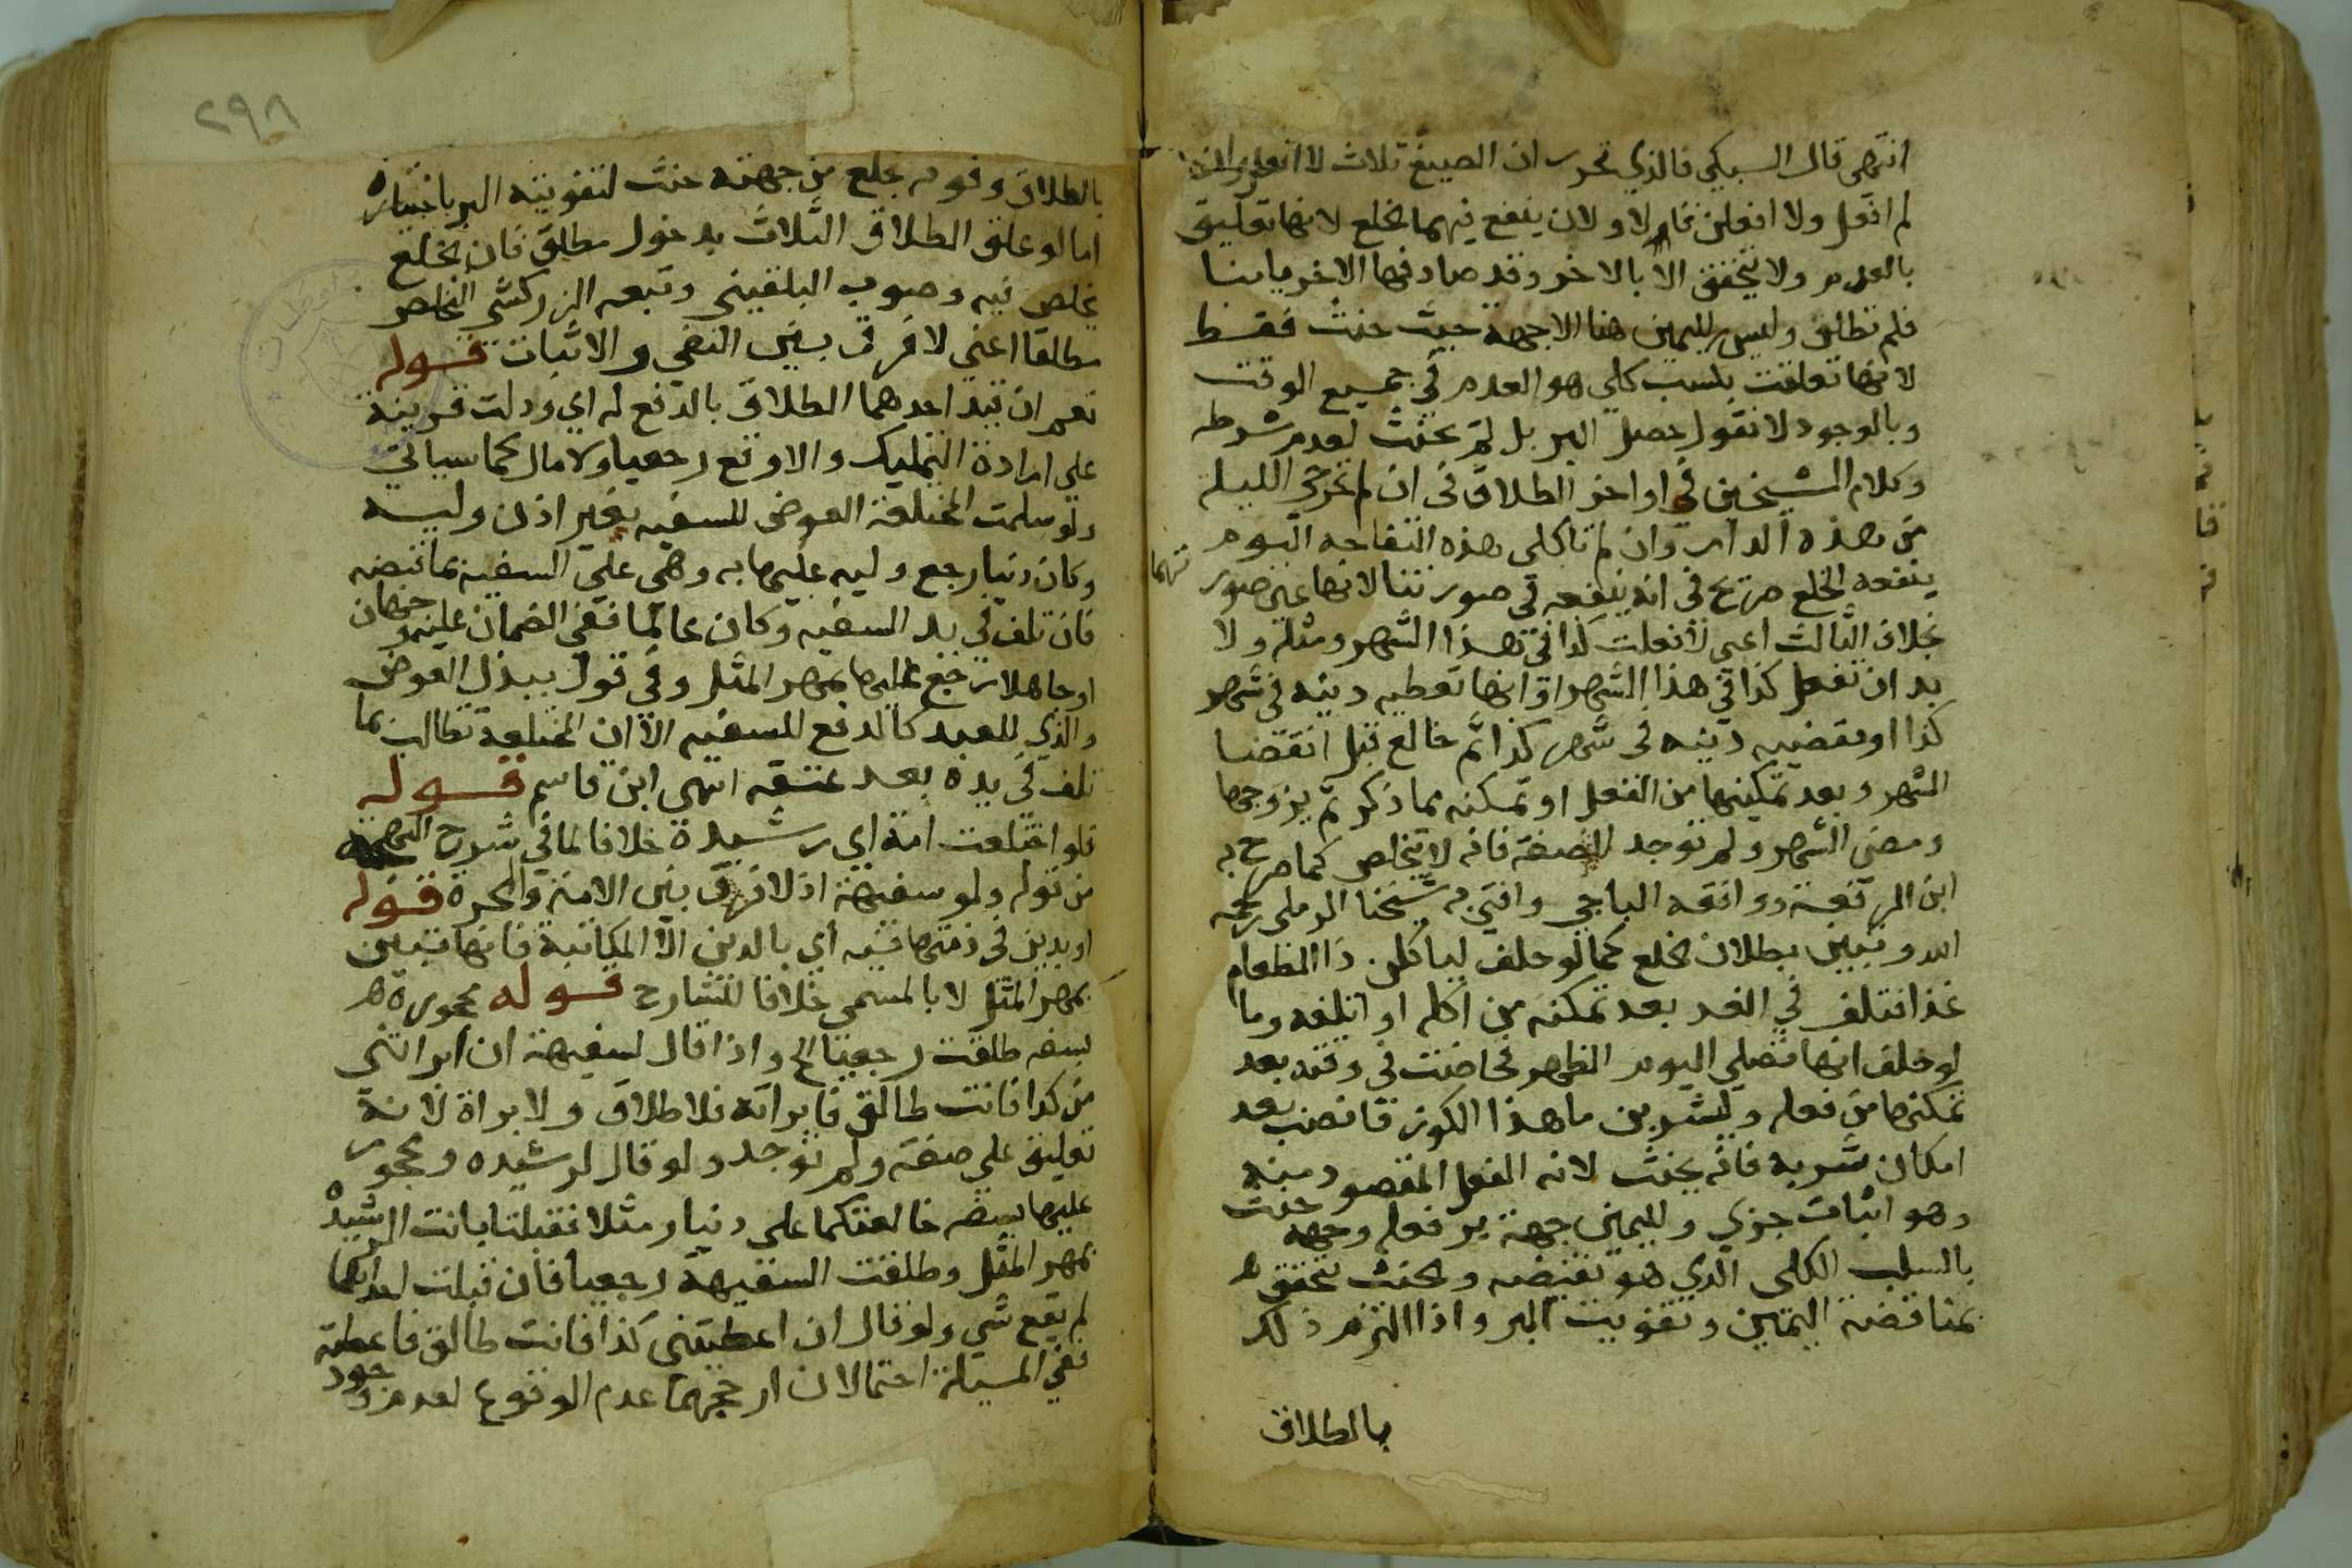 انتهى قال السبكي فالذي تحرر ان الصيغ ثلاث لا افعل وان
لم افعل ولا افعلن فالاولان ينفع فيهما الخلع لانها تعليق
بالعدم ولا يتحقق الا بالاخر وقد صادفها الاخر باينا
فلم تطلق وليس لليمين هنا الا جهة حيث حنث فقط
لانها تعلقت بلسب كلي هو العدم في جميع الوقت
وبالوجود لا نقول حصل البر بل لم يحنث لعدم شرطه
وكلام الشيخين في اواخر الطلاق في ان لم تخرجي الليلة
من هذه الدار وان لم تاكلي هذه التفاحة اليوم
ينفعه الخلع صريح في انه ينفعه في صورتنا لانها عين صور تهما
بخلاف الثالث اعني لافعلن كذا في هذا الشهر ومثله ولا
بد ان تفعل كذا في هذا الشهر او انها تعطيه دينه في شهر
كذا او يقضيه دينه في شهر كذا ثم خالع قبل انقضا
الشهر وبعد تمكينها من الفعل او تمكنه مما ذكر ثم يزوجها
ومضى الشهر ولم توجد الصفة فانه لا يتخلص كما صرح به
ابن الرفعة ووافقه الباجي وافتى به شيخنا الرملي رحمه
الله وتبين بطلان الخلع كما لو حلف لياكلن ذا الطعام
غدا فتلف في الغد بعد تمكنه من اكله او اتلفه وما
لو حلف انها تصلي اليوم الظهر فحاضت في وقته بعد
تمكنها من فعله وليشربن ما هذا الكوز فانصب بعد
امكان شربه فانه يحنث لانه الفعل المقصود منه
وهو اثبات جزي ولليمين جهة بر فعله وجهه حنث
بالسلب الكلي الذي هو نقيضه والحنث تحقق
بمناقضة اليمين وتفويت البر واذا التزم ذلك
بالطلاق
٢٩٨
بالطلاق وفوته بخلع من جهته حنث لتفويته البر باختياره
اما لو علق الطلاق الثلاث بدخول مطلق فان الخلع
يخلص فيه وصوب البلقيني وتبعه الزركشي التخلص
مطلقا اعني لا فرق بين النفي والاثبات قوله
نعم ان قيد احدهما الطلاق بالدفع له اي ودلت قرينة
على ارادة التمليك والا وقع رجعيا ولا مال كما سياتي
ولو سلمت المختلعة العوض للسفيه بغير اذن وليه
وكان دنيا رجع وليه عليها به وهي على السفيه بما قبضه
فان تلف في يد السفيه وكان عالما ففي الضمان عليه وجهان
او جاهلا رجع عليها بمهر المثل وفي قول ببدل العوض
والذي للعبد كالدفع للسفيه الا ان المختلعة تطالب بما
تلف في يده بعد عتقه انتهى ابن قاسم قوله
فلو اختلعت امة اي رشيدة خلافا لما في شرح البهجة
من قوله ولو سفيهة اذ لا فرق بين الامة والحرة قوله
او بدين في ذمتها فيه اي بالدين الا المكاتبة فانها تبين
بمهر المثل لا بالمسمى خلافا للشارح قوله محجورة
بسفه طلقت رجعيا الخ واذا قال لسفيهة ان ابراتني
من كذا فانت طالق فابراته فلا طلاق ولا براة لانه
تعليق على صفة ولم توجد ولو قال لرشيده ومحجور
عليها بسفه خالعتكما على دينار مثلا فقبلتا بانت الرشيدة
بمهر المثل وطلقت السفيهة رجعيا فان قبلت احداهما
لم يقع شي ولو قال ان اعطيتني كذا فانت طالق فاعطته
ففي المسيلة احتمالان ارجحهما عدم الوقوع لعدم وجود